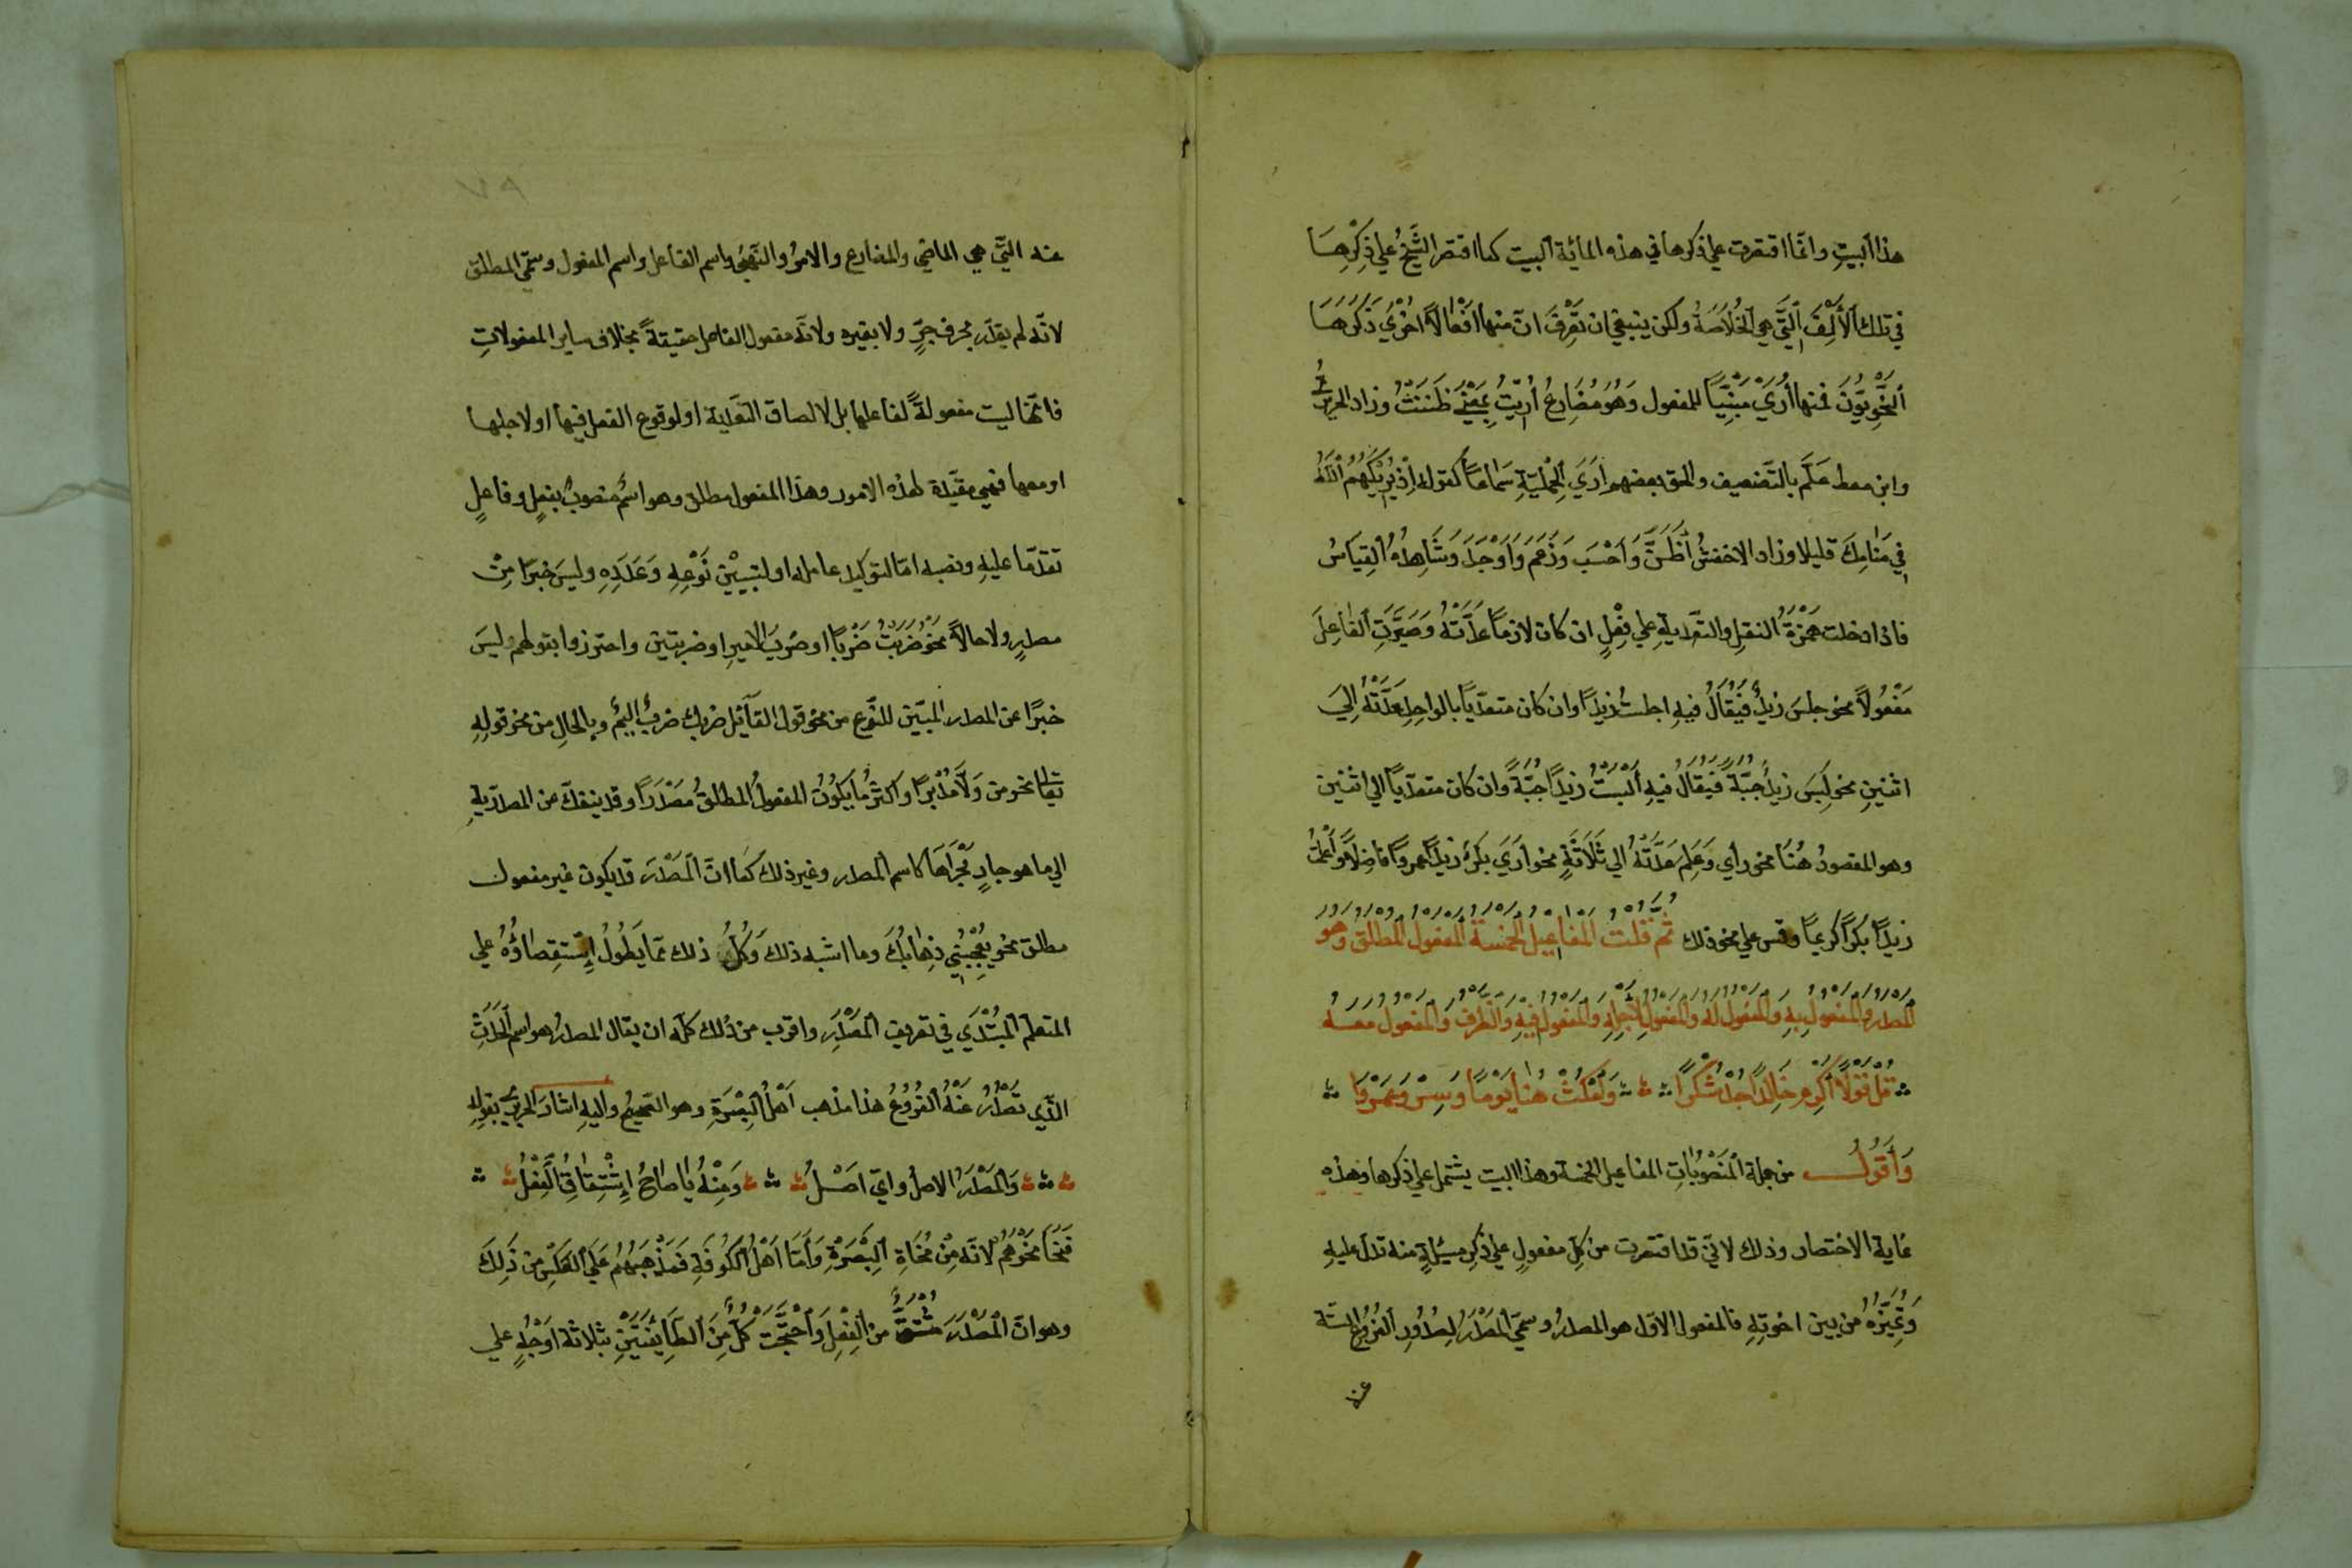 هذا البيت وانّما اقتصرت علي ذكرها في هذه المائية البيت كما اقتصر الشَّيخُ علي ذِكْرِهَا
في تلك اَلْأَلِفَ اَلَّتِي هي اَلْخُلَاصَةُ ولكن ينبغي ان تَعْرِفَ انّ منها اَفْعَالًا اُخْرَي ذَكَرَهَا
اَلنَّحْوِيُّونَ فمنها اُرَيْ مَبْنِيًّا للمفعول وَهُوَ مُضَارِعُ اُرِيْتُ بِمَعْنَي ظَنَنْتُ وزاد الحريريُّ
وابن معط عَلَّمَ بالتَّضعيف والحق بعضهم اَرَيَ اَلْحُلْمِيَّةِ سَمَاعًا كقوله اِذْ يُرِيْكَهُمُ اللّٰهُ
فِي مَنَامِكَ قليلا وزاد الاخفشُ اَظَنَّ وَاَحْسَبَ وَزَعَمَ وَاَوْجَدَ وَشَاهِدُهُ اَلْقِيَاسُ
فاذا ادخلت هَمْزَةُ النقلِ والتَّعديةِ علي فِعْلٍ ان كان لازمًا عَدَّتْهُ وَصَيَّرَتِ اَلْفَاعِلَ
مَفْعُولًا نحو جلسَ زيدٌ فَيُقَالُ فيهِ اجلستُ زيدًا وان كان متعدّيًا بالواحِدِ عَدَّتْهُ اِلَيَ
اثنينِ نحو لَبِسَ زيدٌ جُبَّةً فَيُقَالُ فيهِ اَلْبَسْتُ زيدًا جُبَّةً وان كان متعدّيًا الي اثنين
وهو المقصودُ هُنَا نحو رأي وَعَلِمَ عَدَّتْهُ الي ثَلَاثَةٍ نحو اَرَيَ بكرٌ زيدًا عمروًا فاضِلًا وَاَعْلَمْتُ
زيدًا بكرًا كريمًا وقس علي نحو ذلك ثُمَّ قُلْتُ اَلْمَفَاعِيلُ اَلْخَمْسَةُ اَلْمَفْعُولُ اَلْمُطْلَقُ وَهُوَ
اَلْمَصْدَرُ وَالْمَفْعُولُ بِهِ وَالْمَفْعُولُ لَهُ وَالْمَفْعُولُ لِاَجْلِهِ وَالْمَفْعُولُ فِيْهِ وَالظَّرْفُ وَالْمَفْعُولُ مَعَهُ
قُلْ قَوْلًا اَكْرِمْ خَالِدًا جُدْ شُكْرًا وَامْكُثْ هُنَا يَوْمًا وَسِرْ وَعَمْرْوًا
وَاَقُولُ من جملة اَلْمَنْصُوبَاتِ المفاعيل الخمسة وهذا البيت يشتمل علي ذكرها وهذه
غاية الاختصار وذلك لانّي قد اقتصرت من كلّ مفعولٍ علي ذكرِ مسئلةٍ منه تدلّ عليهِ
وَتُمَيِّزُهُ من بين اخوتِهِ فالمفعول الاوّل هو المصدرُ وسمّيَ اَلْمَصْدَرُ لِصُدُورِ اَلْفُرُوعِ السّتّة
عنه
عنه الَّتي هي الماضي والمضارع والامرُ والنَّهيُ واسم الفاعل واسم المفعول وسمّي المطلق
لانّه لم يقدّر بحرفِ جرٍّ ولا بغيره ولانّه مفعول الفاعل حقيقةً بخلاف ساير المفعولاتِ
فانّها ليست مفعولةً لفاعلها بل لالصاق التَّعدية او لوقوع الفعل فيها او لاجلها
او معها فهي مقيّدة لهذه الامور وهذا المفعول مطلق وهو اسمٌ منصوبٌ بفعلٍ وفاعلٍ
تقدّما عليهِ ونصبه امّا لتوكيد عامله او لتبيينِ نَوْعِهِ وَعَدَدِهِ وليسَ خبرًا مِنْ
مصدرٍ ولا حالًا نحوُ ضَرَبْتُ ضَرْبًا او ضَرْبَ الاميرِ او ضربتين واحترزوا بقولهم وليسَ
خبرًا عن المصدر المبيّن للنّوع من نحو قول القآئل ضربك ضربٌ اليمٌ وبالحالِ من نحو قولِهِ
تعالى نحو من وَلَّى مُدْبِرًا واكثرُ ما يَكُوْنُ المفعولُ المطلقُ مَصْدَرًا وقد ينفكّ عن المصدريّةِ
الي ما هو جارٍ مَجْرَاهَا كاسم المصدر وغير ذلك كَمَا انَّ اَلْمَصْدَرَ قد يكون غير مفعول
مطلق نحو يُعْجِبُنِي ذِهَابُكَ وما اشبه ذلك وَكُلُّ ذلك ممّا يَطُولُ اِسْتِقْصَاؤُهُ علي
المتعلّم اَلْمُبْتَدِيْ في تعريف اَلْمَصْدَرِ واقرب من ذلك كلّه ان يقال المصدرُ هو اسم اَلْحَدَثِ
الّذي تَصْدُرُ عَنْهُ اَلْفُرُوْعُ هذا مذهب اَهْلُ اَلْبَصْرَةِ وهو الصّحيحُ واليهِ اشارَ الحريريّ بقولِهِ
وَالْمَصْدَرُ الاصلُ وايّ اَصْلُ وَمِنْهُ يَا صَاحُ اِشْتِقَاقُ اَلْفِعْلُ
فَنَحَا نَحْوَهُمْ لانّه مِنْ نُحَاةِ اَلْبَصْرَةِ وَاَمَّا اَهْلُ اَلْكُوفَةِ فَمَذْهَبُهُمْ عَلَي اَلْعَكْسِ من ذَلِكَ
وهو انّ اَلْمَصْدَرَ مُشْتَقٌّ من اَلْفِعْلِ وَاَحْتَجَّتْ كُلٌّ مِنَ اَلطَّائِفَتَيْنِ بثلاثة اَوْجُهٍ علي